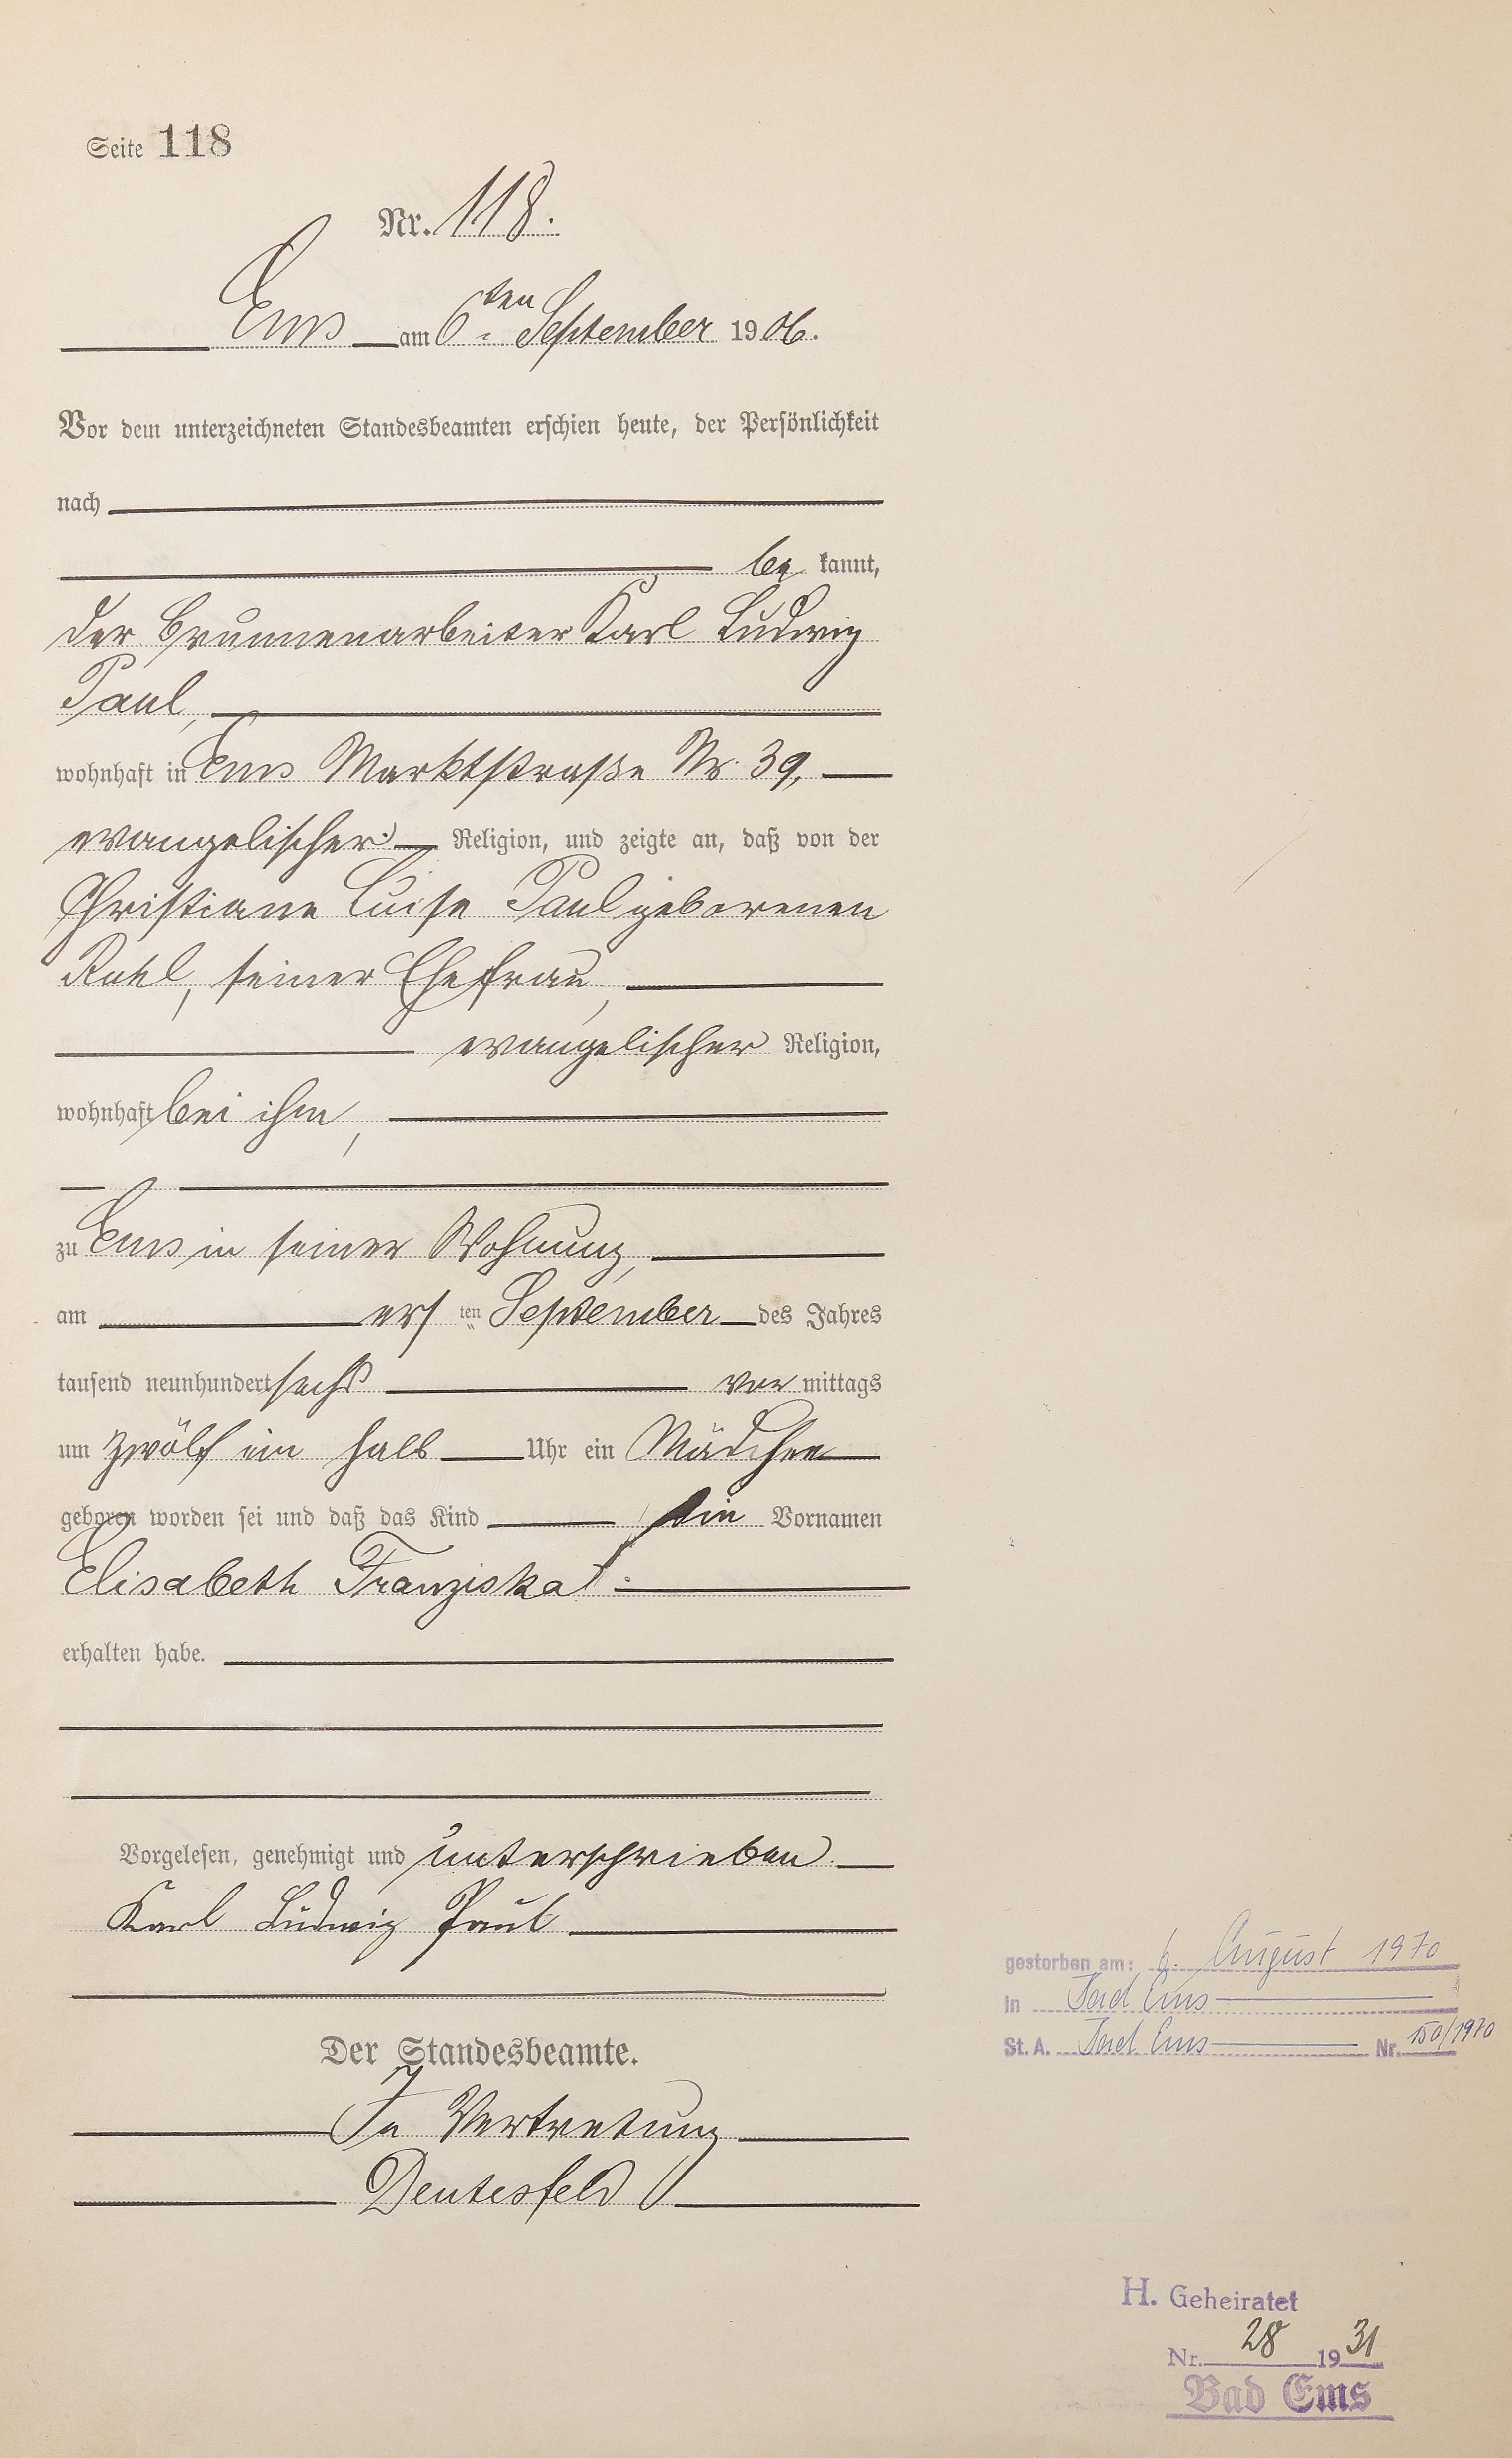 Seite 118
Nr. 118.
Ems am 6ten September 1906.
Vor dem unterzeichneten Standesbeamten erschien heute, der Persönlichkeit
nach
be kannt,
der Brunnenarbeiter Karl Ludwig
Paul,
wohnhaft in Ems Marktstraße Nr. 39,
evangelischer Religion, und zeigte an, daß von der
Christiane Luise Paul geborenen
seiner Ehefrau,
evangelischer Religion,
wohnhaft bei ihm,
zu Ems in seiner Wohnung,
am ers ten September des Jahres
tausend neunhundert sechs vor mittags
um zwölf ein halb Uhr ein Mädchen
geboren worden sei und daß das Kind die Vornamen
Elisabeth Franziska
erhalten habe.
Vorgelesen, genehmigt und unterschrieben.
Karl Ludwig Paul
Der Standesbeamte.
In Vertretung
gestorben am: 6. August 1970
in Bad Ems
St. A. Bad Ems Nr. 150/1970
H. Geheiratet
Nr. 28 1931
Bad Ems